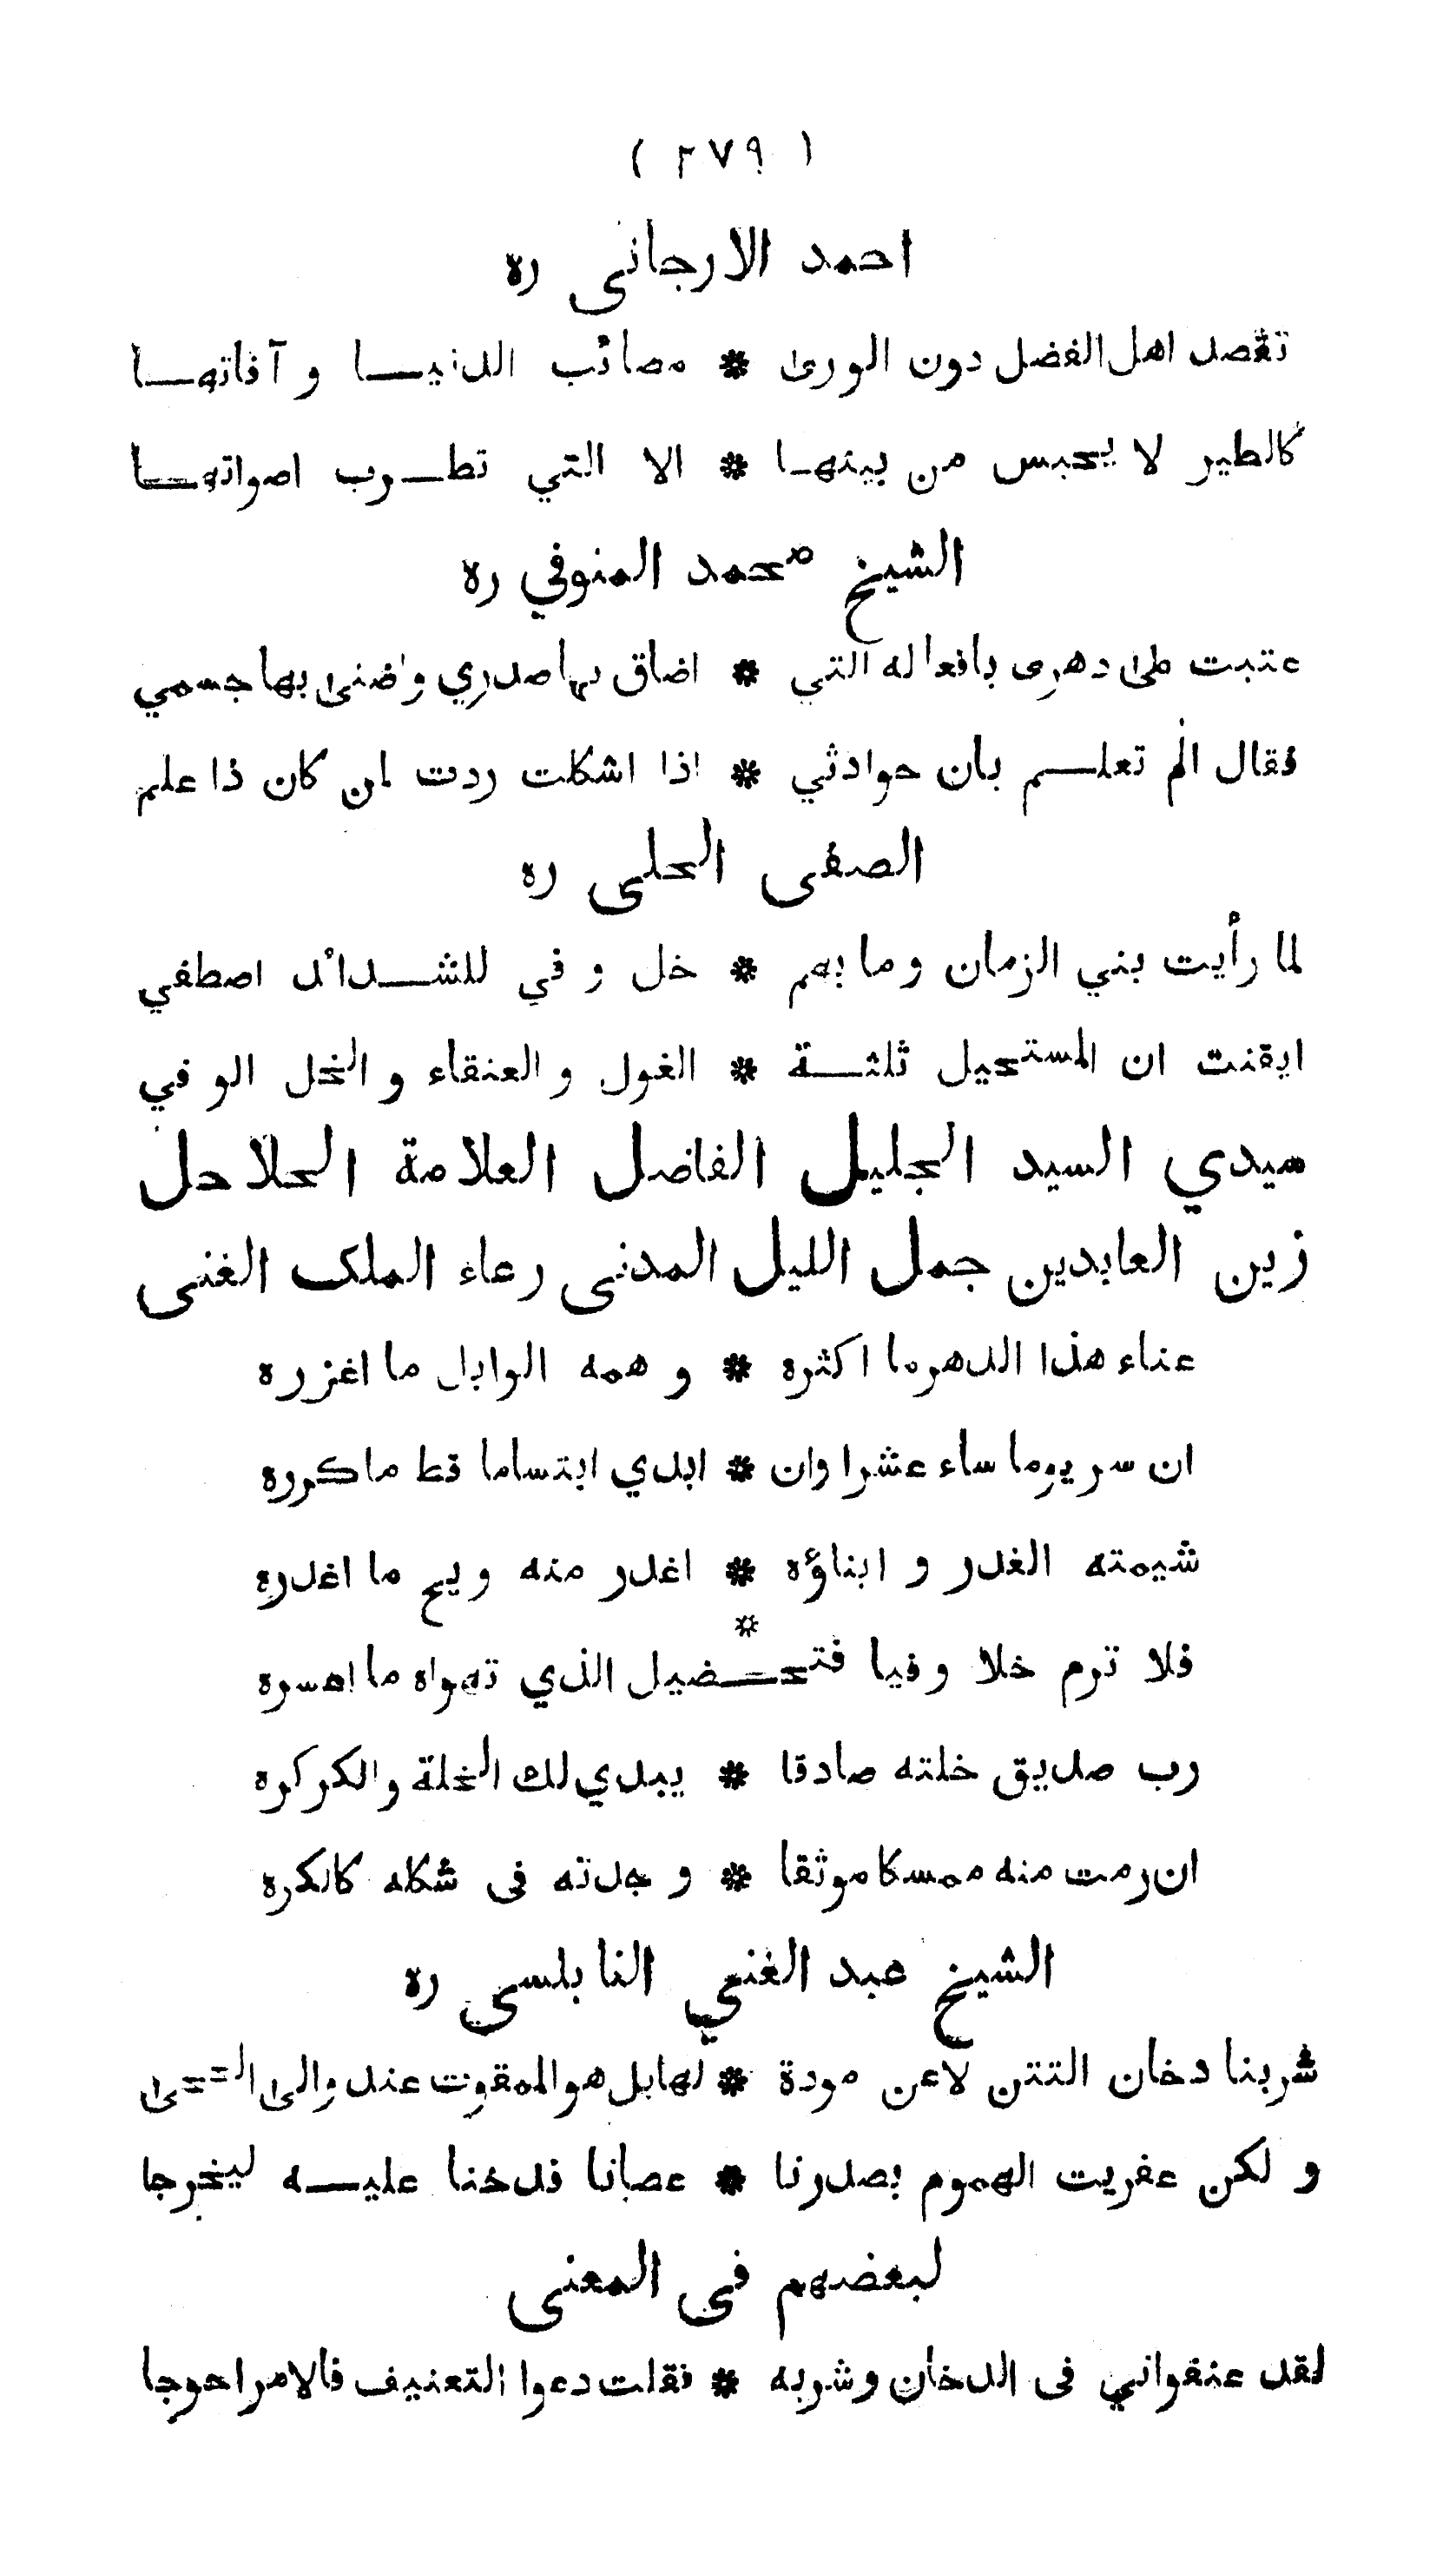 ( ٢٧٩ )
احمد الارجانى ره
تقصد اهل الفضل دون الورى * مصائب الدنيـــا و آفاتهـــا
كالطير لا يحبس من بينهـا * الا التي تطـرب اصواتهـــا
الشيخ محمد المنوفي ره
عتبت على دهرى بافعاله التي * اضاق بها صدري واضنى بها جسمي
فقال الم تعلـــم بان حوادثي * اذا اشكلت ردت لمن كان ذا علم
الصفى الحلى ره
لما رأيت بني الزمان وما بهم * خل و في للشـــدائد اصطفي
ايقنت ان المستحيل ثلثـــة * الغول و العنقاء و الخل الو في
سيدي السيد الجليل الفاضل العلامة الحلاحل
زين العابدين جمل الليل المدنى رعاه الملك الغنى
عناء هذا الدهر ما اكثره * و همه الوابل ما اغزره
ان سر يوما ساء عشرا وان * ابدي ابتساما قط ما كرره
شيمته الغدر و ابناؤه * اغدر منه ويح ما اغدره
فلا ترم خلا وفيا فتحـــضيل الذي تهواه ما اعسره
رب صديق خلته صادقا * يبدي لك الخلة والكركره
ان رمت منه ممسكا موثقا * و جدته فى شكله كالكره
الشيخ عبد الغني النابلسى ره
شربنا دخان التتن لاعن مودة * لها بل هو الممقوت عند والى الحجى
و لكن عفريت الهموم بصدرنا * عصانا فدخنا عليـــه ليخرجا
لبعضهم فى المعنى
لقد عنفواني فى الدخان وشربه * فقلت دعوا التعنيف فالامر احوجا